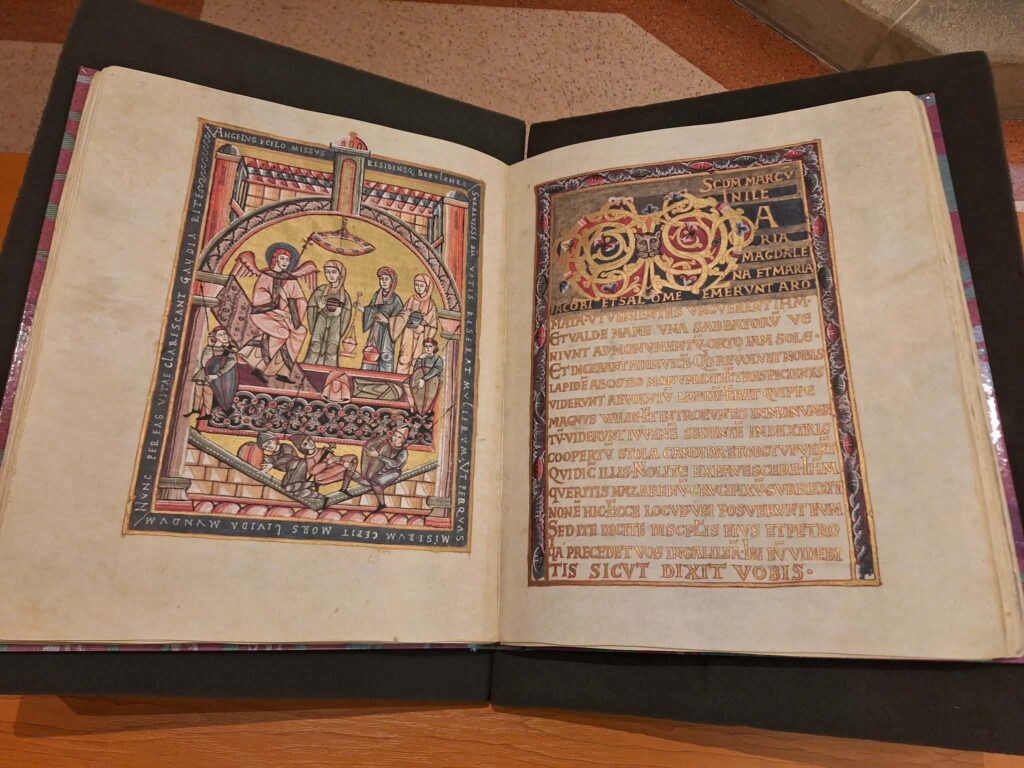 ANGELVS E CELO MISSVS RESIDENSQ; SEPVLCHRO
SVRREXISSE DM VOTIS RESERAT MVLIERVM·VT PER QVAS
MISERVM CEPIT MORS LIVIDA MVNDVM
NVNC PER EAS VITAE CLARESCANT GAVDIA RITE
SCDM MARCV
M
A
RIA
MAGDALE
NA ET MARIA
IACOBI ET SALOME EMERVNT ARO
MATA·VT VENIENTES VNGVERENT IHM·
ET VALDE MANE VNA SABBATORV̄ VE
NIVNT AD MONVMENTV̄·ORTO IAM SOLE·
ET DICEBANT AD INVICĒ·QIS REVOLVET NOBIS
LAPIDĒ AB OSTIO MONVMENTI·ET RESPICIENES
VIDERVNT REVOLVTV̄ LAPIDĒ·ERAT QVIPPE
MAGNVS VALDE·ET INTROEVNES IN MONVMEN
TV̄·VIDERVNT IVVENĒ SEDENTĒ IN DEXTRIS
COOPERTV̄ STOLA CANDIDA·ET OBSTVPVERT̄
QVI DIC̄ ILLIS·NOLITE EXPAVESCERE·IHM
QVERITIS NAZARENV̄·CRVCIFIXV̄·SVRREXIT
NON Ē HIC·ECCE LOCVS VBI POSVERVNT EVM
SED ITE DICITE DISCPLIS EIVS ET PETRO
QA PRECEDET VOS IN GALILEĀ·IBI EV̄ VIDEBI
TIS SICVT DIXIT VOBIS·